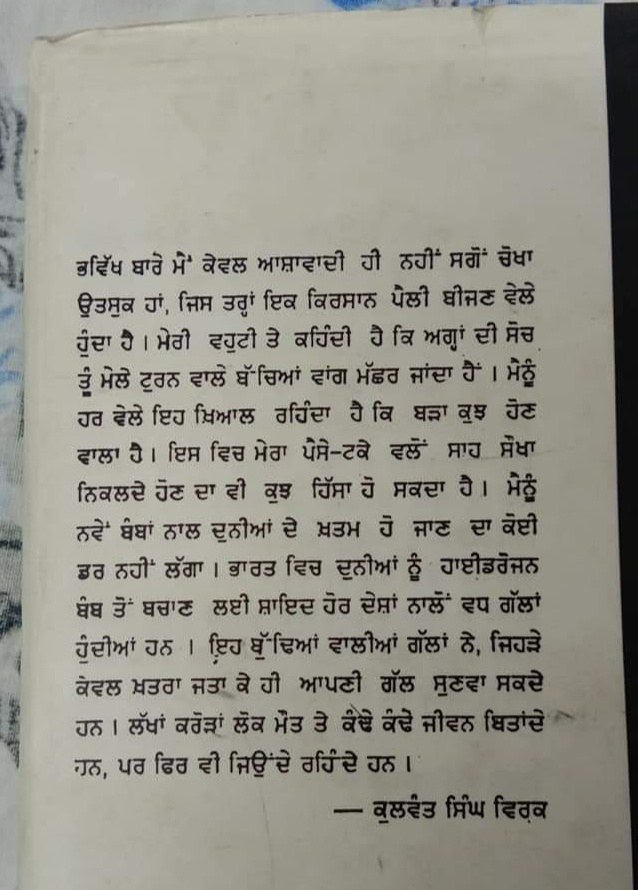 ਭਵਿੱਖ ਬਾਰੇ ਮੈਂ ਕੇਵਲ ਆਸ਼ਾਵਾਦੀ ਹੀ ਨਹੀਂ ਸਗੋਂ ਚੋਖਾ
ਉਤਸੁਕ ਹਾਂ, ਜਿਸ ਤਰ੍ਹਾਂ ਇਕ ਕਿਰਸਾਨ ਪੈਲੀ ਬੀਜਣ ਵੇਲੇ
ਹੁੰਦਾ ਹੈ। ਮੇਰੀ ਵਹੁਟੀ ਤੇ ਕਹਿੰਦੀ ਹੈ ਕਿ ਅਗ੍ਹਾਂ ਦੀ ਸੋਚ
ਤੂੰ ਮੇਲੇ ਟੁਰਨ ਵਾਲੇ ਬੱਚਿਆਂ ਵਾਂਗ ਮੱਛਰ ਜਾਂਦਾ ਹੈਂ। ਮੈਨੂੰ
ਹਰ ਵੇਲੇ ਇਹ ਖ਼ਿਆਲ ਰਹਿੰਦਾ ਹੈ ਕਿ ਬੜਾ ਕੁਝ ਹੋਣ
ਵਾਲਾ ਹੈ। ਇਸ ਵਿਚ ਮੇਰਾ ਪੈਸੇ-ਟਕੇ ਵਲੋਂ ਸਾਹ ਸੌਖਾ
ਨਿਕਲਦੇ ਹੋਣ ਦਾ ਵੀ ਕੁਝ ਹਿੱਸਾ ਹੋ ਸਕਦਾ ਹੈ। ਮੈਨੂੰ
ਨਵੇਂ ਬੰਬਾਂ ਨਾਲ ਦੁਨੀਆਂ ਦੇ ਖ਼ਤਮ ਹੋ ਜਾਣ ਦਾ ਕੋਈ
ਡਰ ਨਹੀਂ ਲੱਗਾ। ਭਾਰਤ ਵਿਚ ਦੁਨੀਆਂ ਨੂੰ ਹਾਈਡਰੋਜਨ
ਬੰਬ ਤੋਂ ਬਚਾਣ ਲਈ ਸ਼ਾਇਦ ਹੋਰ ਦੇਸ਼ਾਂ ਨਾਲੋਂ ਵਧ ਗੱਲਾਂ
ਹੁੰਦੀਆਂ ਹਨ। ਇਹ ਬੁੱਢਿਆਂ ਵਾਲੀਆਂ ਗੱਲਾਂ ਨੇ, ਜਿਹੜੇ
ਕੇਵਲ ਖ਼ਤਰਾ ਜਤਾ ਕੇ ਹੀ ਆਪਣੀ ਗੱਲ ਸੁਣਵਾ ਸਕਦੇ
ਹਨ। ਲੱਖਾਂ ਕਰੋੜਾਂ ਲੋਕ ਮੌਤ ਤੇ ਕੰਢੇ ਕੰਢੇ ਜੀਵਨ ਬਿਤਾਂਦੇ
ਹਨ, ਪਰ ਫਿਰ ਵੀ ਜਿਉਂਦੇ ਰਹਿੰਦੇ ਹਨ।
— ਕੁਲਵੰਤ ਸਿੰਘ ਵਿਰਕ